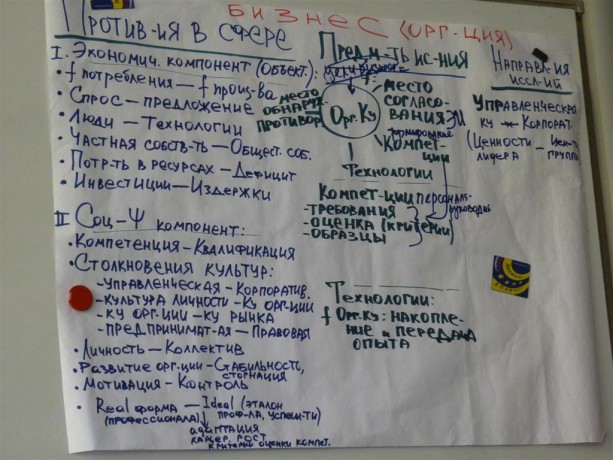 БИЗНЕС (ОРГ-ЦИЯ)
ПРОТИВ-ИЯ В СФЕРЕ
I. ЭКОНОМИЧ. КОМПОНЕНТ (ОБЪЕКТ.):
• f ПОТРЕБЛЕНИЯ — f ПРОИЗ-ВА
• СПРОС — ПРЕДЛОЖЕНИЕ
• ЛЮДИ — ТЕХНОЛОГИИ
• ЧАСТНАЯ СОБСТВ-ТЬ — ОБЩЕСТ. СОБ.
• ПОТР-ТЬ В РЕСУРСАХ — ДЕФИЦИТ
• ИНВЕСТИЦИИ — ИЗДЕРЖКИ
II СОЦ-Ψ КОМПОНЕНТ:
• КОМПЕТЕНЦИЯ — КВАЛИФИКАЦИЯ
• СТОЛКНОВЕНИЯ КУЛЬТУР:
- УПРАВЛЕНЧЕСКАЯ - КОРПОРАТИВ.
- КУЛЬТУРА ЛИЧНОСТИ - КУ ОРГ-ЦИИ
- КУ ОРГ-ЦИИ — КУ РЫНКА
- ПРЕДПРИНИМАТ-АЯ — ПРАВОВАЯ
• ЛИЧНОСТЬ — КОЛЛЕКТИВ
• РАЗВИТИЕ ОРГ-ЦИИ — СТАБИЛЬНОСТЬ,
СТОГНАЦИЯ
• МОТИВАЦИЯ — КОНТРОЛЬ
• Real ФОРМА — Ideal (ЭТАЛОН
(ПРОФЕССИОНАЛА) ПРОФ-ЛА, УСПЕШ-ТИ)
АДАПТАЦИЯ
КАРЬЕР. РОСТ
КРИТЕРИИ ОЦЕНКИ КОМПЕТ.
ПРЕДМ-ТЬ ИС-НИЯ
МЕСТО
ОБНАРУЖ.
ПРОТИВОР.
Орг. Ку
МЕСТО
СОГЛАСО-
ВАНИЯ
ФОРМИРОВАНИЕ
КОМПЕТ-
ЦИИ
ТЕХНОЛОГИИ
КОМПЕТ-ЦИИ ПЕРСОНАЛ-
РУКОВОДИТ
- ТРЕБОВАНИЯ
- ОЦЕНКА (КРИТЕРИИ)
- ОБРАЗЦЫ
ТЕХНОЛОГИИ:
f ОРГ КУ: НАКОПЛЕ-
НИЕ И ПЕРЕДАЧА
ОПЫТА
НАПРАВЛ-ИЯ
ИССЛ-ИЙ
УПРАВЛЕНЧЕСКАЯ
КУ — КОРПОРАТ.
(ЦЕННОСТИ — ЦЕН-ТИ
ЛИДЕРА ГРУППЫ)